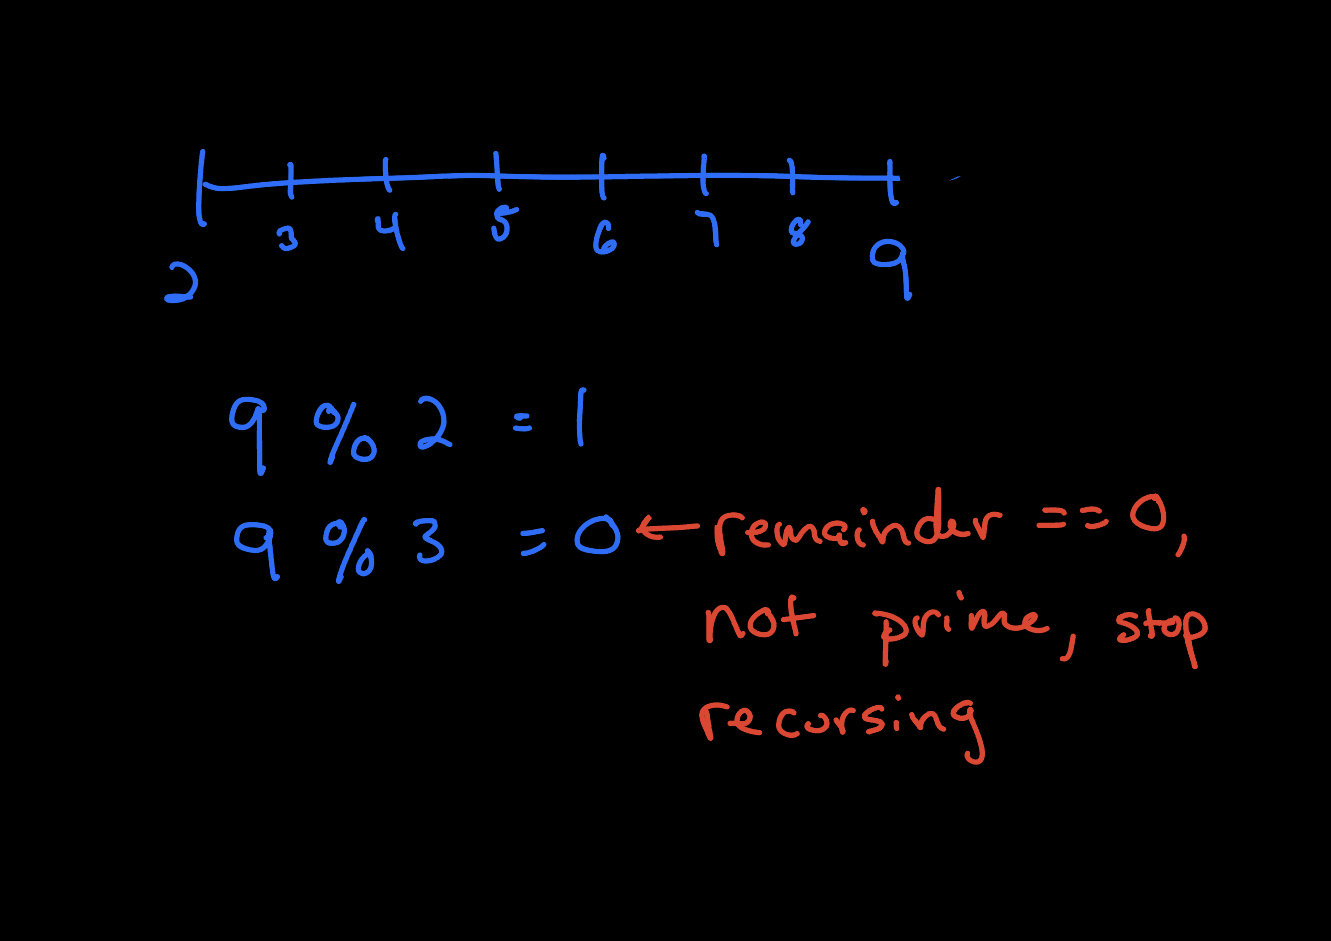 3 4 5 6 7 8
2 9
9 % 2 = 1
9 % 3 = 0 ← remainder == 0,
not prime, stop
recursing